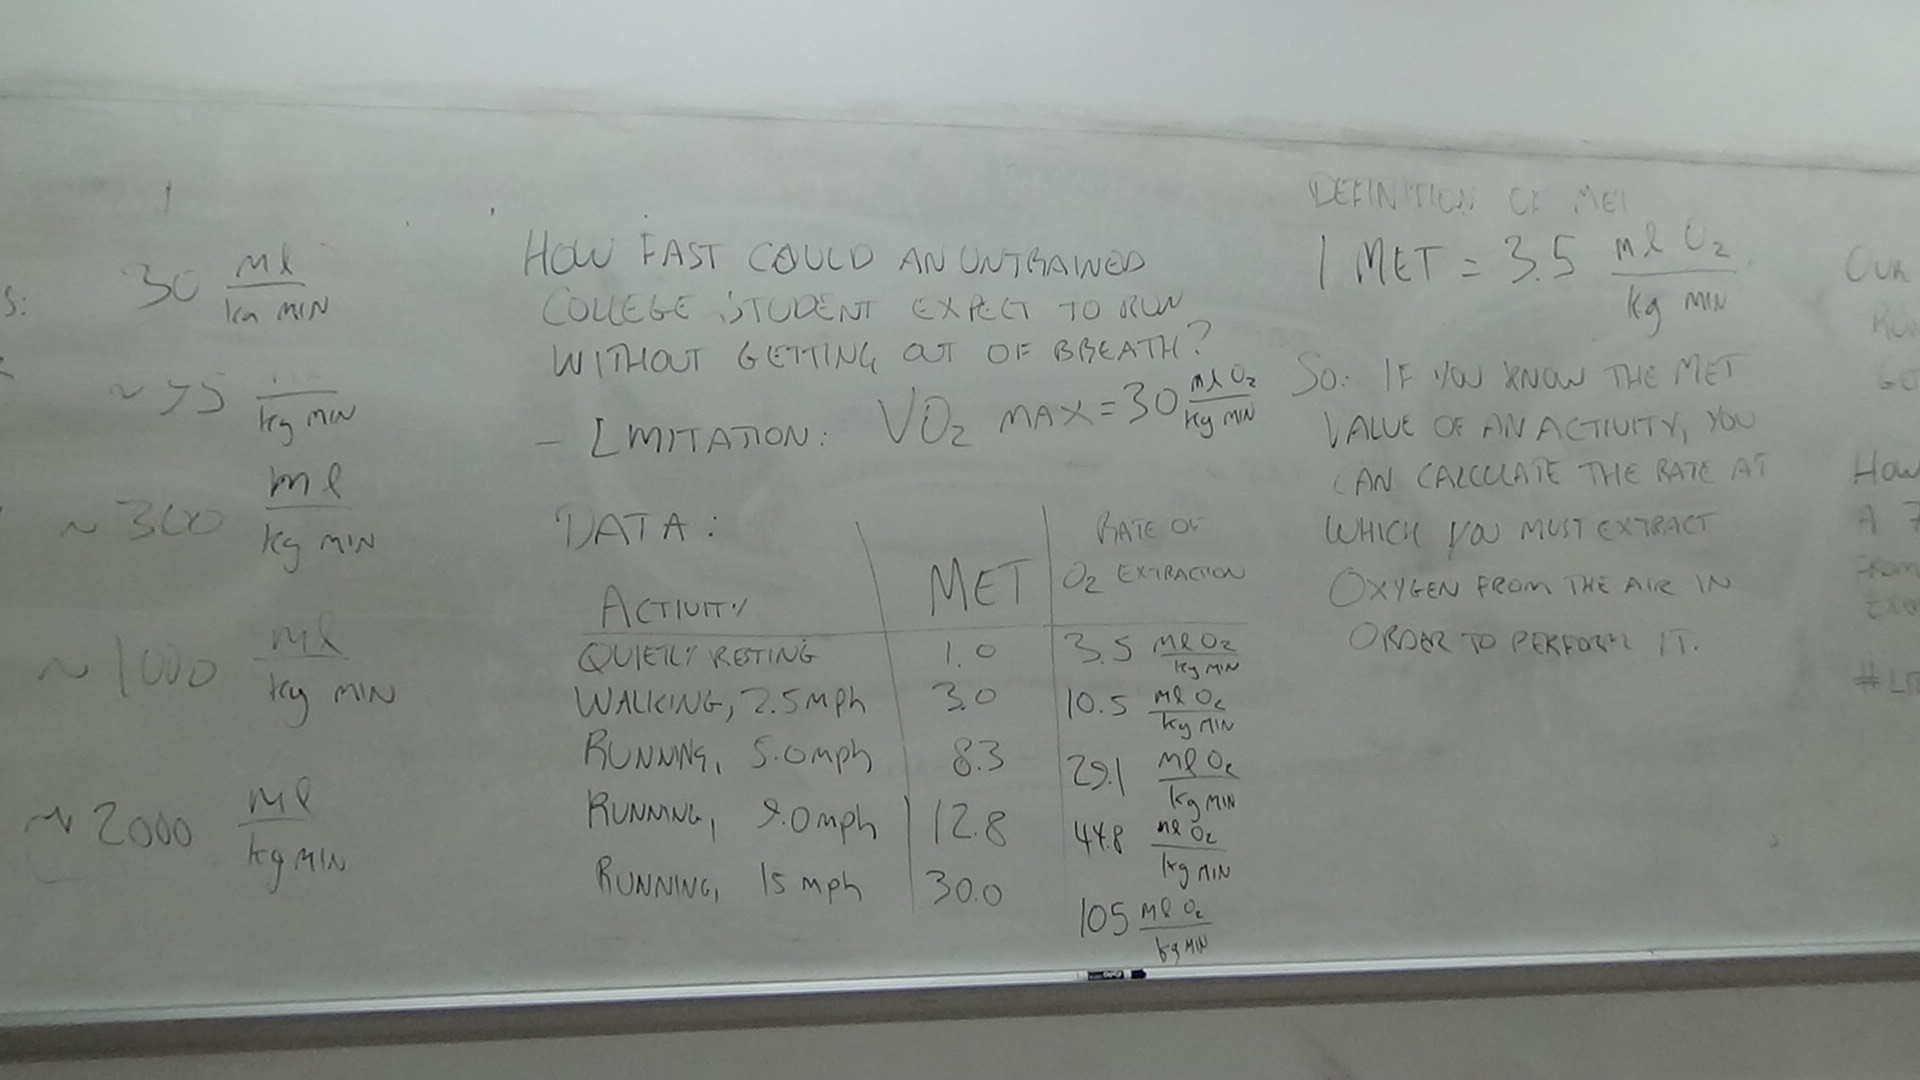 S:
30 ml
kg MIN
kg MIN
~300 ml
kg MIN
~1000 ml
kg MIN
~2000 ml
kg MIN
HOW FAST COULD AN UNTRAINED
COLLEGE STUDENT EXPECT TO RUN
WITHOUT GETTING OUT OF BREATH?
- LMITATION: VO₂ MAX = 30 ml O₂
kg MIN
DATA:
ACTIVITY MET RATE OF
O₂ EXTRACTION
QUIETLY RESTING 1.0 3.5 ml O₂
kg MIN
WALKING, 2.5 mph 3.0 10.5 ml O₂
kg MIN
RUNNING, 5.0 mph 8.3 29.1 ml O₂
kg MIN
RUNNING, 9.0 mph 12.8 44.8 ml O₂
kg MIN
RUNNING, 15 mph 30.0 105 ml O₂
kg MIN
DEFINITION OF MET
1 MET = 3.5 ml O₂
kg MIN
SO: IF YOU KNOW THE MET
VALUE OF AN ACTIVITY, YOU
CAN CALCULATE THE RATE AT
WHICH YOU MUST EXTRACT
OXYGEN FROM THE AIR IN
ORDER TO PERFORM IT.
OUR
HOW
A 7
FROM